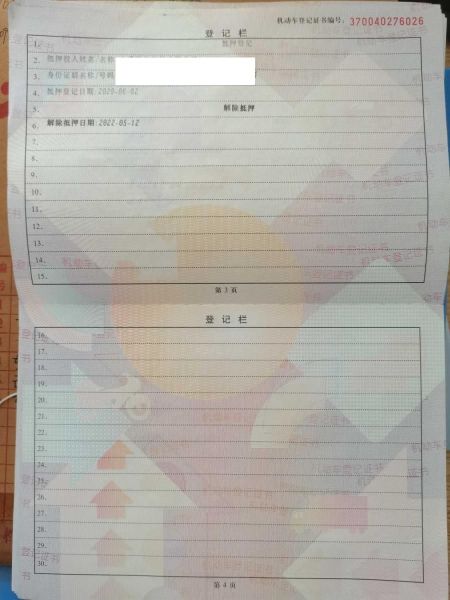 机动车登记证书编号：370040276026
登 记 栏
1. 抵押登记
2. 抵押权人姓名/名称
3. 身份证明名称/号码
4. 抵押登记日期:2020-06-02
5. 解除抵押
6. 解除抵押日期:2022-05-12
7.
8.
9.
10.
11.
12.
13.
14.
15.
第 3 页
登 记 栏
16.
17.
18.
19.
20.
21.
22.
23.
24.
25.
26.
27.
28.
29.
30.
第 4 页